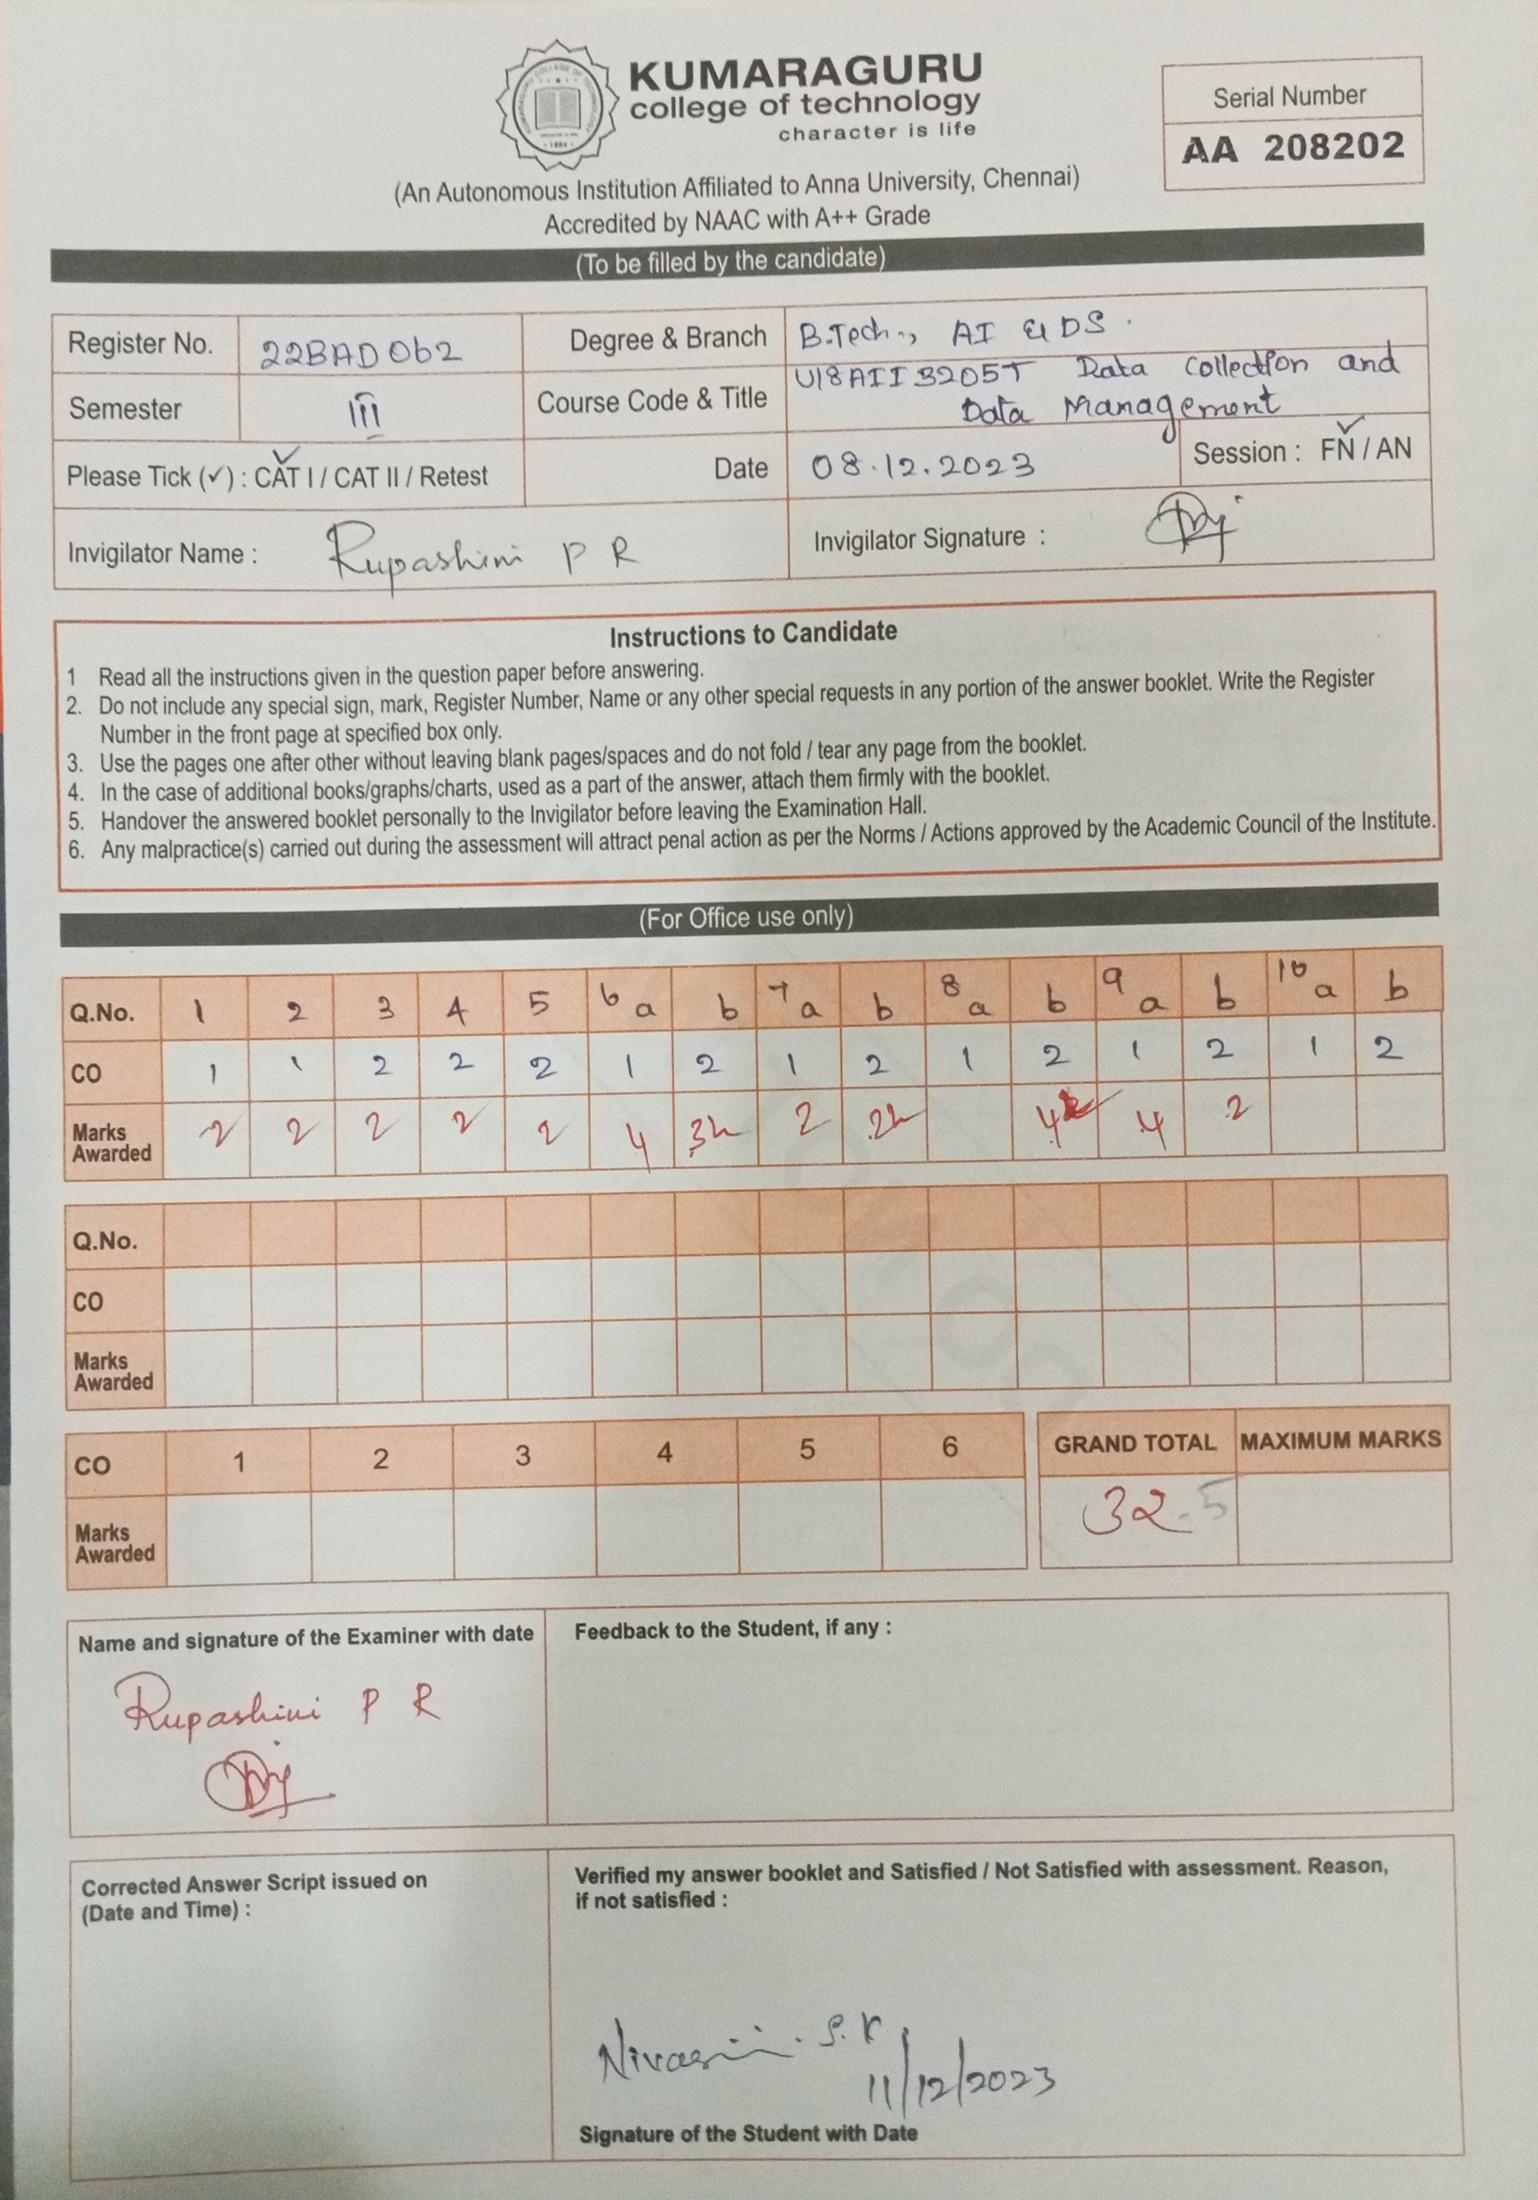 KUMARAGURU
college of technology
character is life
Serial Number
AA 208202
(An Autonomous Institution Affiliated to Anna University, Chennai)
Accredited by NAAC with A++ Grade
(To be filled by the candidate)
Register No. 22BAD062 Degree & Branch B.Tech., AI & DS.
Semester III Course Code & Title U18AII3205T Data Collection and
Data Management
Please Tick (✓) : CAT I / CAT II / Retest Date 08.12.2023 Session : FN / AN
Invigilator Name : Rupashini P R Invigilator Signature :
Instructions to Candidate
1 Read all the instructions given in the question paper before answering.
2. Do not include any special sign, mark, Register Number, Name or any other special requests in any portion of the answer booklet. Write the Register
Number in the front page at specified box only.
3. Use the pages one after other without leaving blank pages/spaces and do not fold / tear any page from the booklet.
4. In the case of additional books/graphs/charts, used as a part of the answer, attach them firmly with the booklet.
5. Handover the answered booklet personally to the Invigilator before leaving the Examination Hall.
6. Any malpractice(s) carried out during the assessment will attract penal action as per the Norms / Actions approved by the Academic Council of the Institute.
(For Office use only)
Q.No. 1 2 3 4 5 6 a b 7 a b 8 a b 9 a b 10 a b
CO 1 1 2 2 2 1 2 1 2 1 2 1 2 1 2
Marks
Awarded 2 2 2 2 2 4 2 4 4 2
Q.No.
CO
Marks
Awarded
CO 1 2 3 4 5 6 GRAND TOTAL MAXIMUM MARKS
Marks
Awarded 32.5
Name and signature of the Examiner with date Feedback to the Student, if any :
Rupashini P R
Corrected Answer Script issued on
(Date and Time) :
Verified my answer booklet and Satisfied / Not Satisfied with assessment. Reason,
if not satisfied :
11/12/2023
Signature of the Student with Date